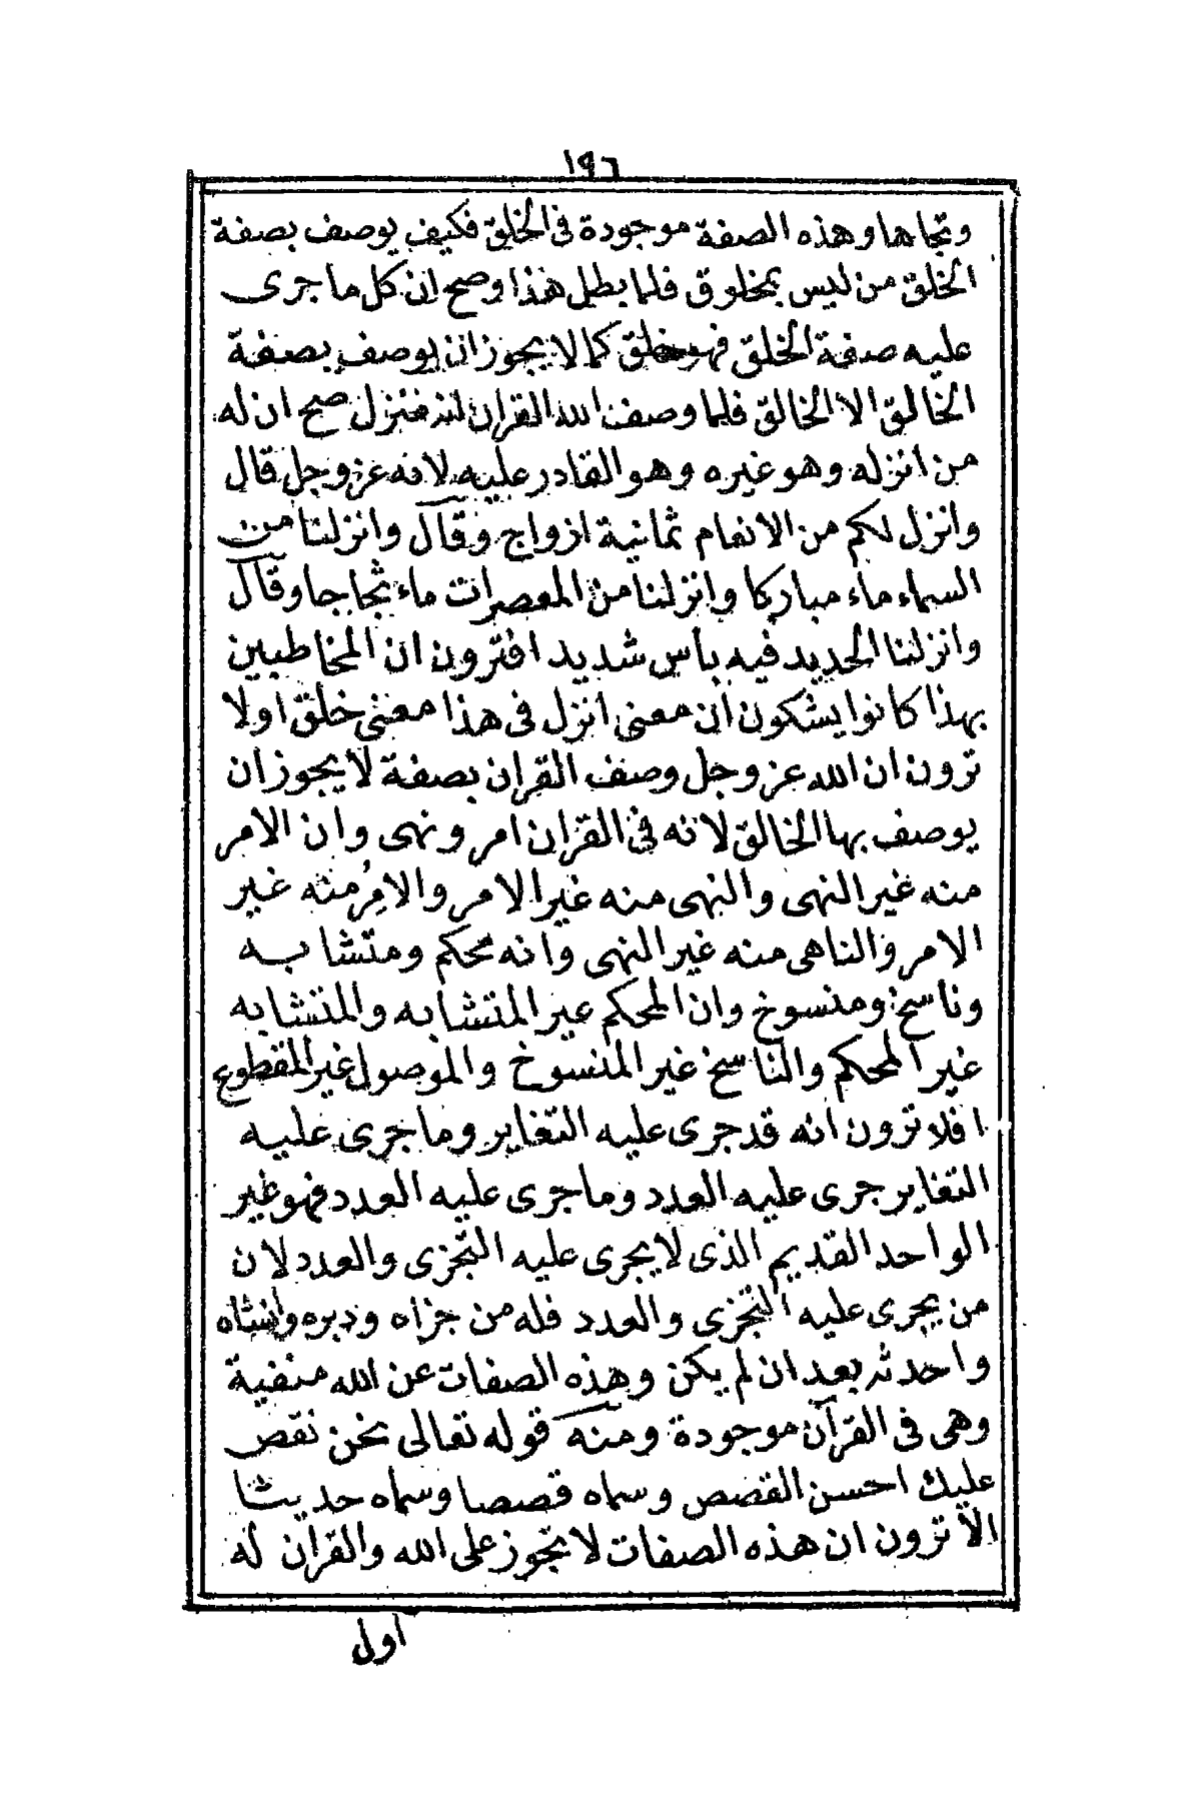 ١٩٦
وتجاها وهذه الصفة موجودة فى الخلق فكيف يوصف بصفة
الخلق من ليس بمخلوق فلما بطل هذا وصح ان كل ما جرى
عليه صفة الخلق فهو خلق كما لا يجوز ان يوصف بصفة
الخالق الا الخالق فلما وصف الله القران انه منزل صح ان له
من انزله وهو غيره وهو القادر عليه لانه عز وجل قال
وانزل لكم من الانعام ثمانية ازواج وقال وانزلنا من
السماء ماء مباركا وانزلنا من المعصرات ماء ثجاجا وقال
وانزلنا الحديد فيه بأس شديد افترون ان المخاطبين
بهذا كانوا يشكون ان معنى انزل فى هذا معنى خلق اولا
ترون ان الله عز وجل وصف القران بصفة لا يجوز ان
يوصف بها الخالق لانه فى القران امر ونهى وان الامر
منه غير النهى والنهى منه غير الامر والامِرُ منه غير
الامر والناهى منه غير النهى وانه محكم ومتشابه
وناسخ ومنسوخ وان المحكم غير المتشابه والمتشابه
غير المحكم والناسخ غير المنسوخ والموصول غير المقطوع
افلا ترون انه قد جرى عليه التغاير وما جرى عليه
التغاير جرى عليه العدد وما جرى عليه العدد فهو غير
الواحد القديم الذى لا يجرى عليه التجزى والعدد لان
من يجرى عليه التجزى والعدد فله من جزاه ودبره وانشاه
واحدثه بعد ان لم يكن وهذه الصفات عن الله منفية
وهى فى القرآن موجودة ومنه قوله تعالى نحن نقص
عليك احسن القصص وسماه قصصا وسماه حديثا
الا ترون ان هذه الصفات لا تجوز على الله والقران له
اول